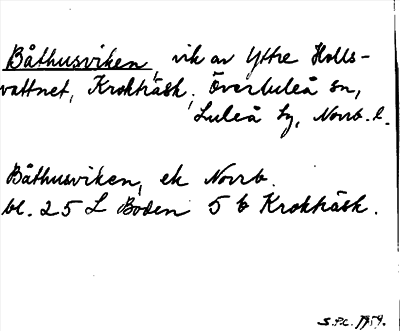 Båthusviken, vik av Yttre Holls-
vattnet, Krokträsk, Överluleå sn,
Luleå tg, Norrb. l.
Båthusviken, ek Norrb.
bl. 25 L Boden 5 b Krokträsk.
S.P.C. 1959.